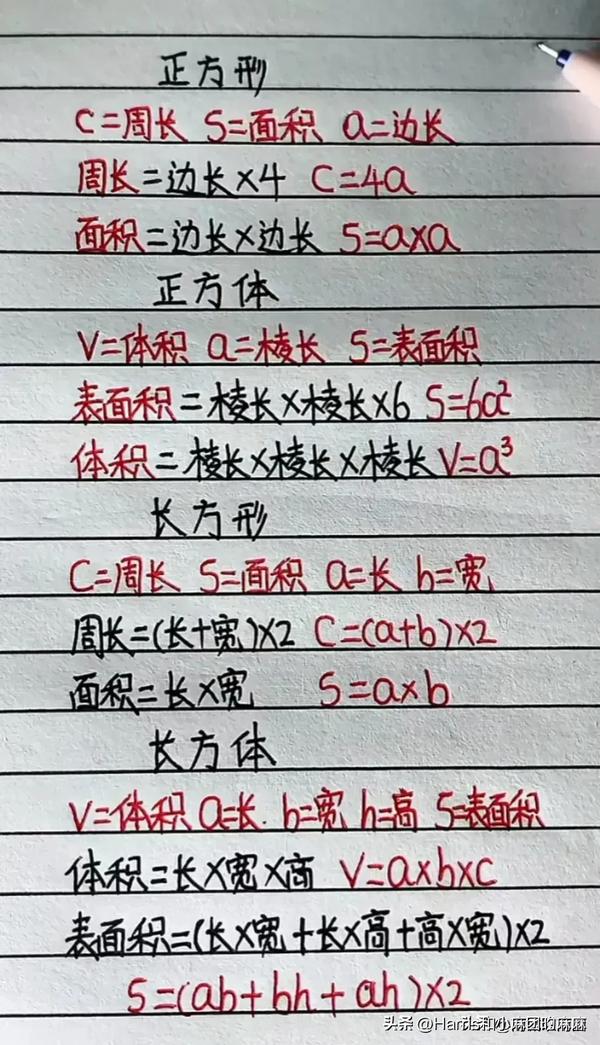 正方形
C=周长 S=面积 a=边长
周长=边长×4 C=4a
面积=边长×边长 S=a×a
正方体
V=体积 a=棱长 S=表面积
表面积=棱长×棱长×6 S=6a²
体积=棱长×棱长×棱长 V=a³
长方形
C=周长 S=面积 a=长 b=宽
周长=(长+宽)×2 C=(a+b)×2
面积=长×宽 S=a×b
长方体
V=体积 a=长. b=宽 h=高 S=表面积
体积=长×宽×高 V=a×b×c
表面积=(长×宽+长×高+高×宽)×2
S=(ab+bh+ah)×2
头条 @Harris和小麻团的麻麻